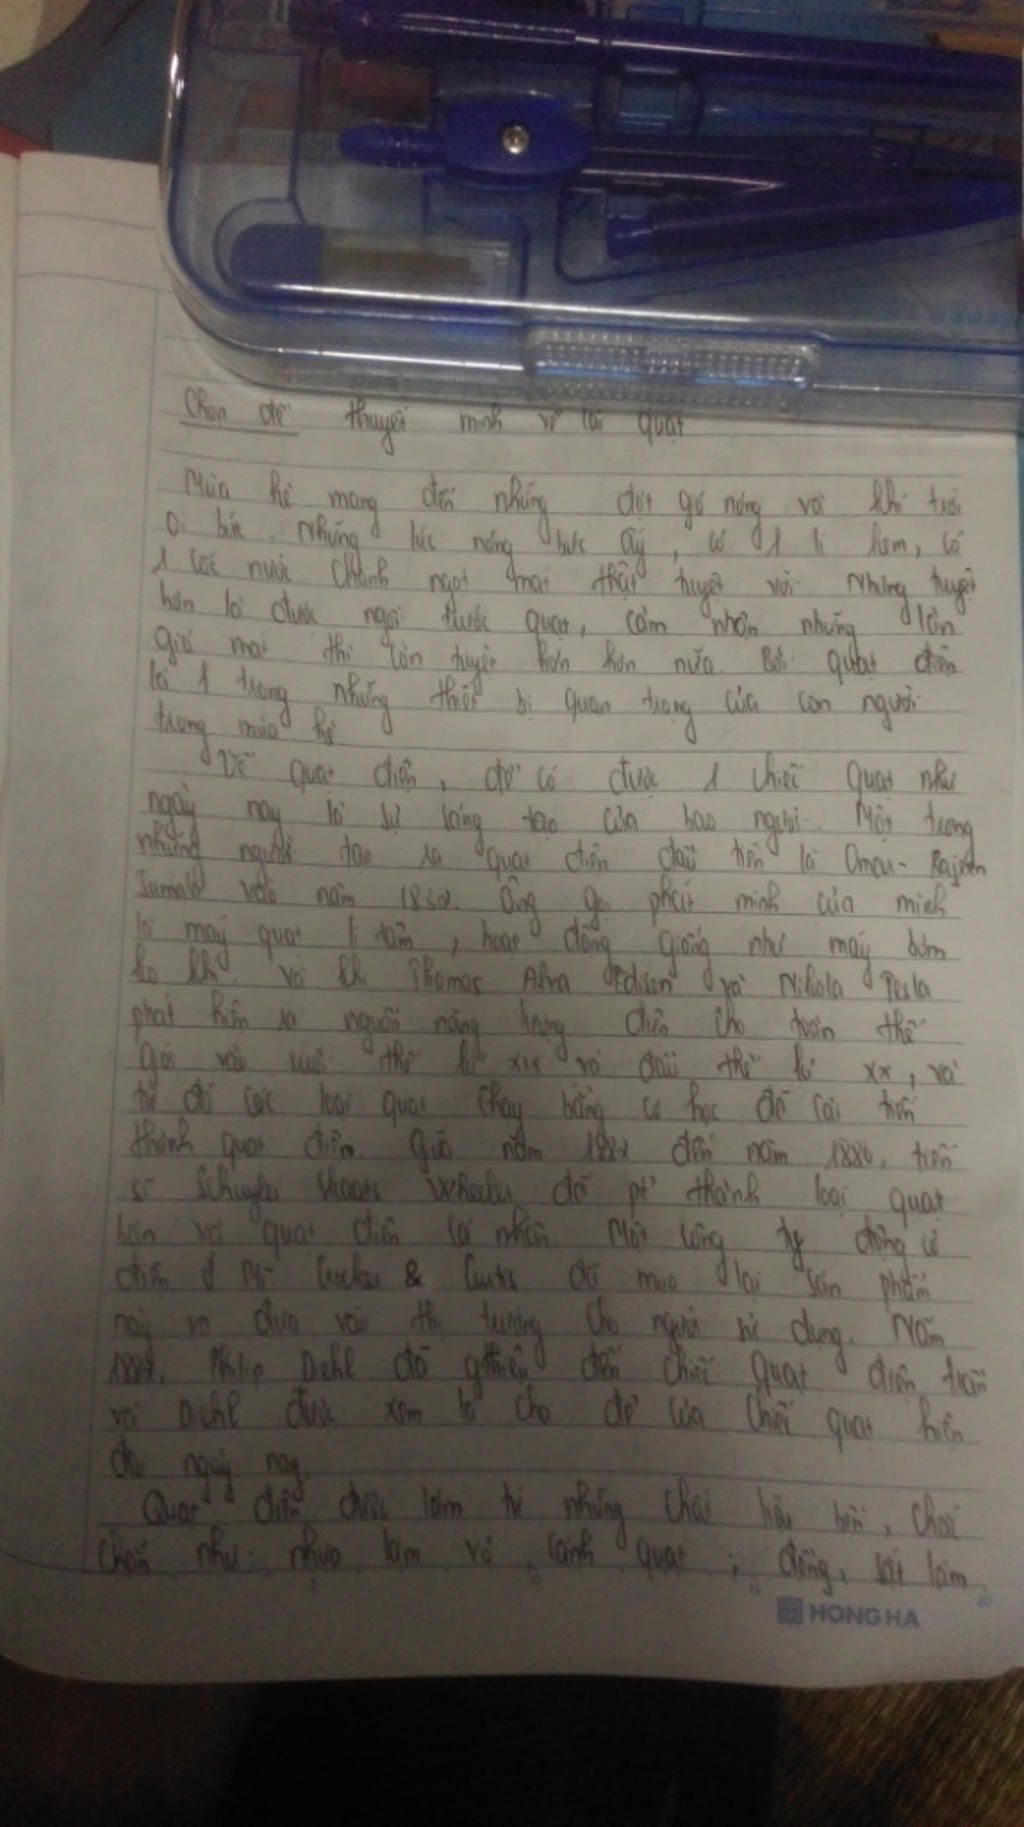 Chọn đề thuyết minh về cái quạt
Mùa hè mang đến những đợt gió nóng với khí trời
oi bức. Những lúc nóng bức ấy, có 1 li kem, có
1 cốc nước chanh ngọt mát thật tuyệt vời. Nhưng tuyệt
hơn là được ngồi trước quạt, cảm nhận những làn
gió mát thì còn tuyệt hơn hơn nữa. Bởi quạt điện
là 1 trong những thiết bị quan trọng của con người
trong mùa hè.
Về quạt điện, để có được 1 chiếc quạt như
ngày nay là sự sáng tạo của bao người. Một trong
những người tạo ra quạt điện đầu tiên là Omar-Rajeen
Jumala vào năm 1832. Ông gọi phát minh của mình
là máy quạt li tâm, hoạt động giống như máy bơm
ko khí. Và khi Thomas Alva Edison và Nikola Tesla
phát hiện ra nguồn năng lượng điện cho toàn thế
giới vào cuối thế kỉ XIX và đầu thế kỉ XX, và
từ đó các loại quạt chạy bằng cơ học đã cải tiến
thành quạt điện. Giữa năm 1882 đến năm 1886, tiến
sĩ Schuyler Skaats Wheeler đã pt' thành loại quạt
bàn và quạt điện cá nhân. Một công ty động cơ
điện ở Mĩ Crocker & Curtis đã mua lại sản phẩm
này và đưa vào thị trường cho người sử dụng. Năm
1882, Philip Diehl đã gthiệu đến chiếc quạt điện trần
và Diehl được xem là cha đẻ của chiếc quạt hiện
đại ngày nay.
Quạt điện được làm từ những chất liệu bền, chắc
chắn như: nhựa làm vỏ, cánh quạt; đồng, sắt làm
HONG HA